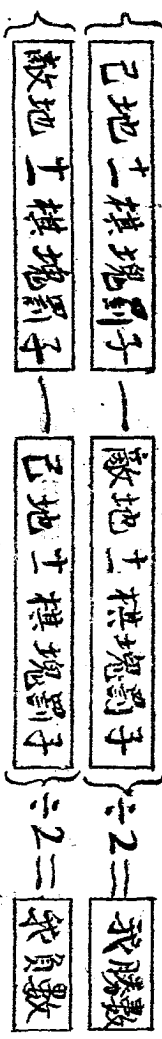 {己地±棋塊罰子 — 敵地±棋塊罰子}÷2=我勝數
{敵地±棋塊罰子 — 己地±棋塊罰子}÷2=我負數